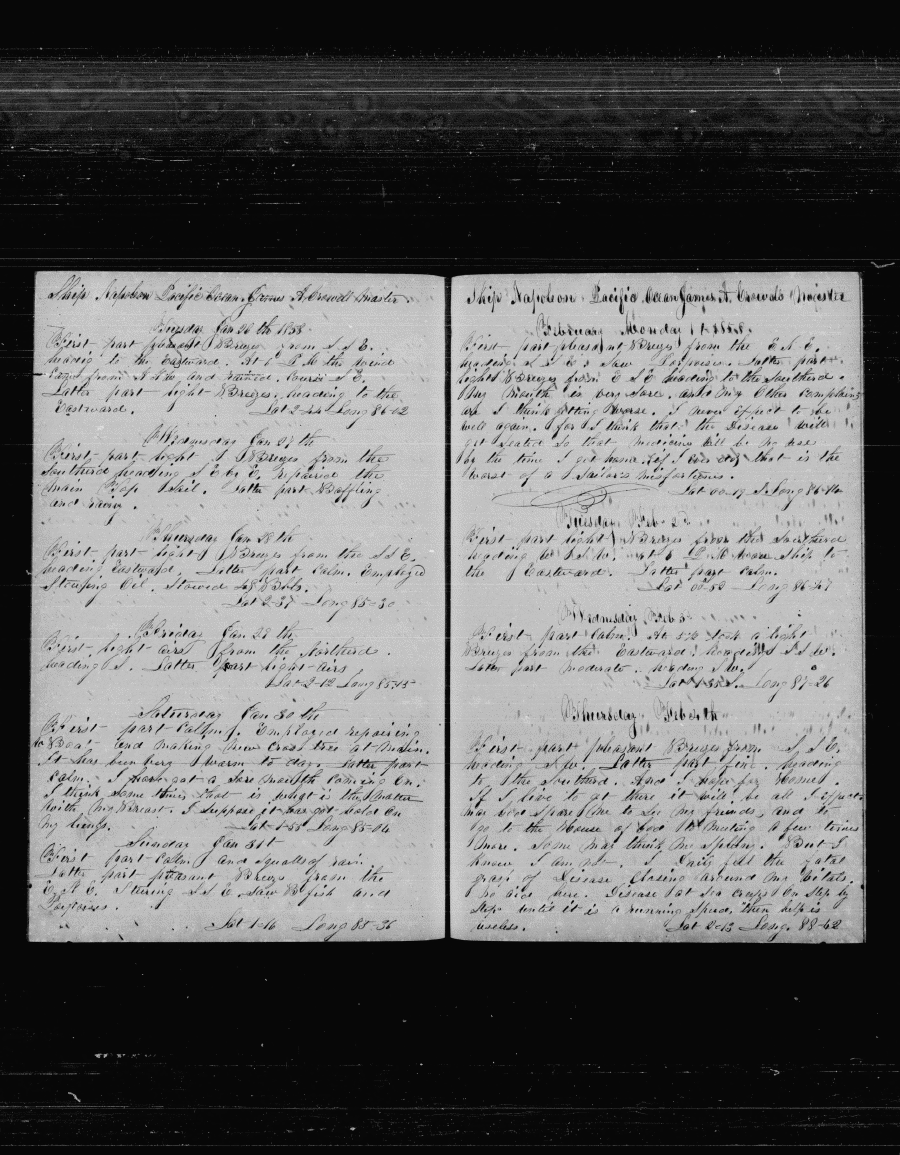 Ship Napoleon Pacific Ocean James A. Crowell Master
Tuesday Jan 26th 1858
First part pleasant Breeze from S S E.
heading to the Eastward. At 6 P.M. the wind
from N.N.W. and rained. Course S E.
Latter part light Breezes heading to the
Eastward. Lat 2-44 Long 86-12
Wednesday Jan 27th
First part light Breezes from the
Southerd heading S E by E. repaired the
main Top Sail. Latter part Baffling
and rainy.
Thursday Jan 28th
First part light Breezes from the S S E.
heading Eastward. Latter part Calm. Employed
Stowing Oil. Stowed 48 Bbls.
Lat 2-37 Long 85-30
Friday Jan 29th
First light airs from the Northerd.
heading S. Latter part light airs
Lat 2-12 Long 85-15
Saturday Jan 30th
First part Calm. Employed repairing
Boat and making new cross tree at Main.
It has been very warm to day. Latter part
Calm. I have got a sore mouth coming on.
I think some thing that is what is the matter
with my Breast. I suppose it has got hold on
my lungs. Lat 1-55 Long 85-04
Sunday Jan 31st
First part Calm and squalls of rain.
Latter part pleasant Breeze from the
E.N.E. Steering S S E. Saw B fish and
Porpoises.
Lat 1-16 Long 85-36
Ship Napoleon Pacific Ocean James A. Crowell Master
February Monday 1st 1858.
First part pleasant Breezes from the E.N.E.
heading S S E. Saw Porpoise. Latter part
light Breezes from E S E heading to the Southerd.
My mouth is very sore. and my Other complaints
are I think getting worse. I never expect to be
well again. for I think that the Disease will
get seated so that medicine will be no use
by the time I get home. (if I ever do) that is the
worst of a Sailor's misfortunes.
Lat 00-19 S Long 86-46
Tuesday Feb 2d
First part light Breezes from the Southerd
heading W.S.W. at 6 P.M. Wore Ship to
the Eastward. Latter part Calm.
Lat 00-52 Long 86-47
Wednesday Feb 3d
First part Calm. At took a light
Breezes from the Eastward. heading S.S.W.
Latter part moderate. heading S.W.
Lat 1-35 S. Long 87-26
Thursday Feb 4th
First part pleasant Breezes from S,S,E.
heading S.W. Latter part fine. heading
to the Southerd. And I hope for Home.
If I live to get there it will be all I expect.
may God Spare me to See my friends, and to
go to the House of God to Meeting a few times
more. Some may think me Spleeny. But I
know I am not. I Daily feel the fatal
grasp of Disease Closing around my Vitals.
No aid here. Disease at Sea creeps on Step by
Step until it is a running Speed, then help is
useless. Lat 2-13 Long. 88-62